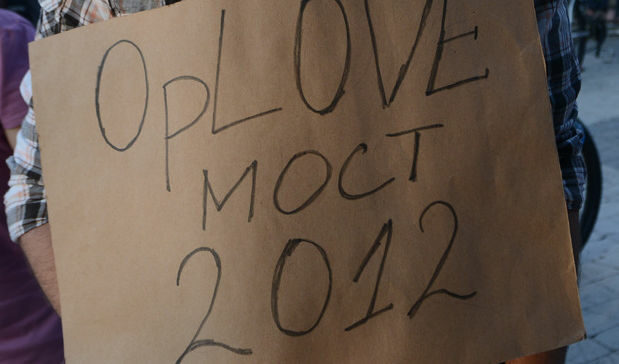 OpLOVE
МОСТ
2012